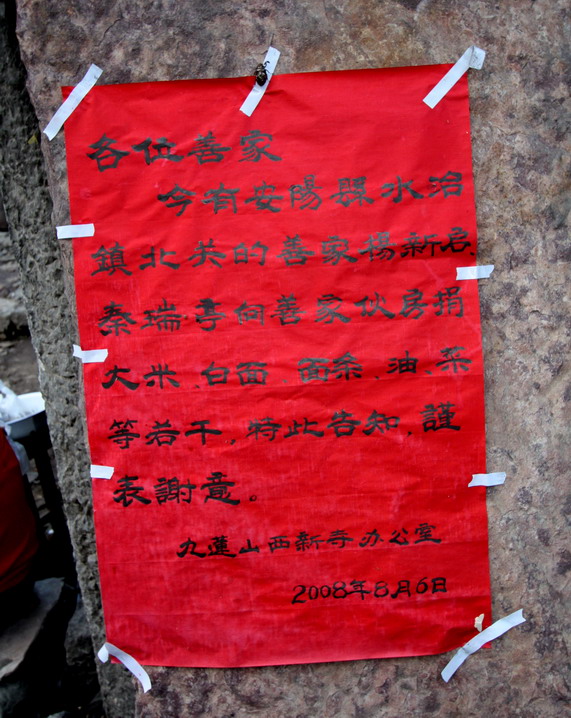 各位善家
今有安陽縣水治
鎮北关的善家楊新启、
秦瑞亭伺善家伙房捐
大米、白面、面条、油、菜
等若干,特此告知,謹
表謝意。
九蓮山西新寺办公室
2008年8月6日